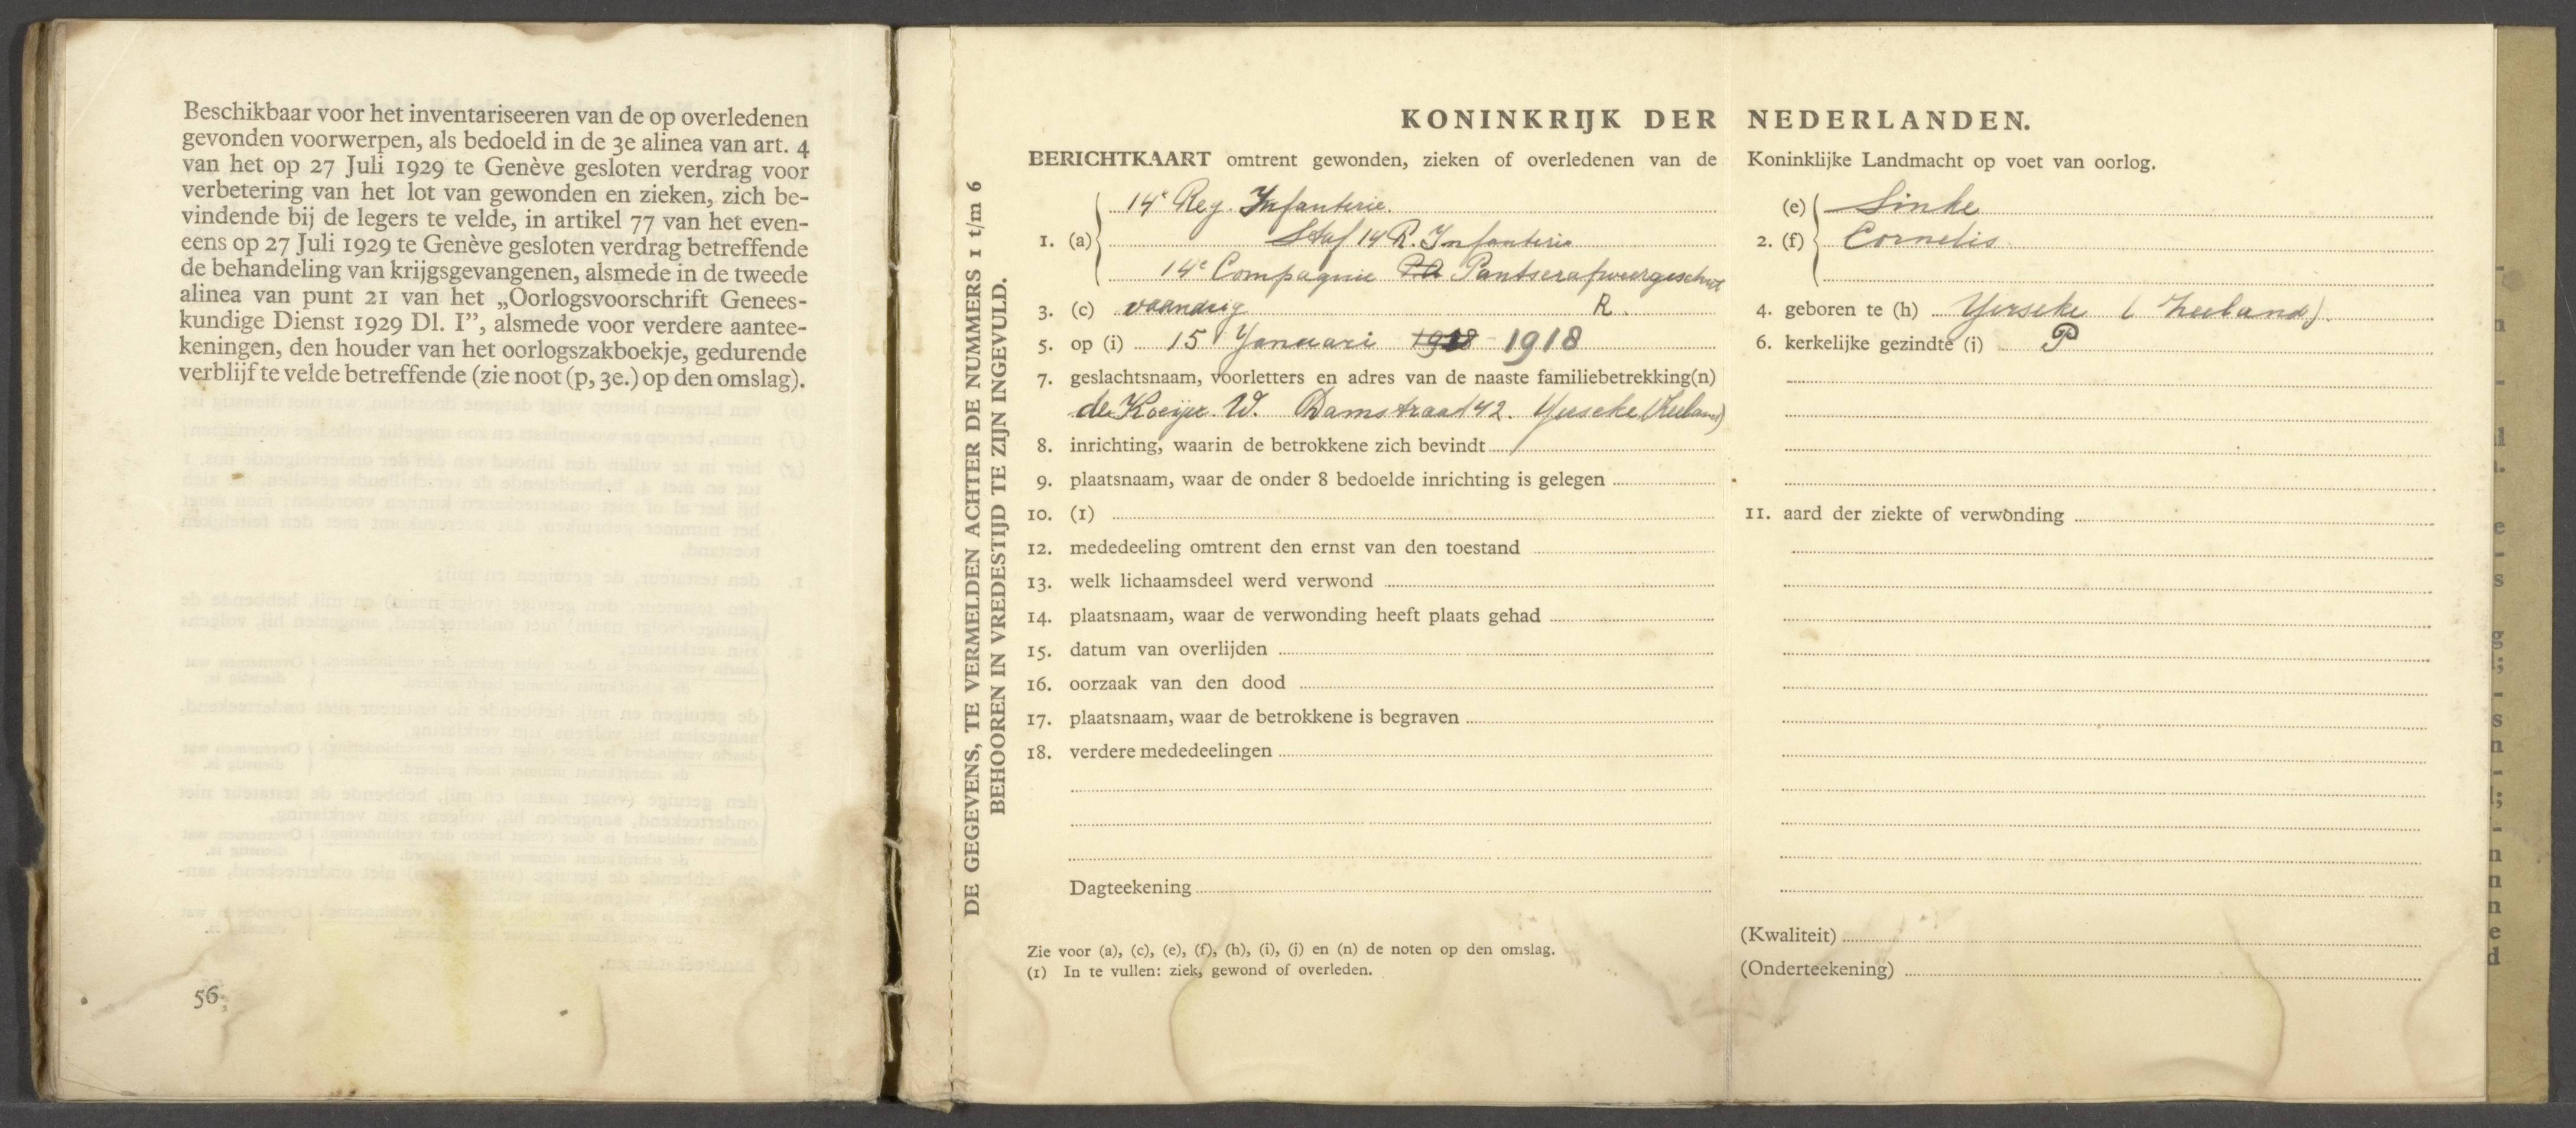 Beschikbaar voor het inventariseeren van de op overledenen
gevonden voorwerpen, als bedoeld in de 3e alinea van art. 4
van het op 27 Juli 1929 te Genève gesloten verdrag voor
verbetering van het lot van gewonden en zieken, zich be-
vindende bij de legers te velde, in artikel 77 van het even-
eens op 27 Juli 1929 te Genève gesloten verdrag betreffende
de behandeling van krijgsgevangenen, alsmede in de tweede
alinea van punt 21 van het „Oorlogsvoorschrift Genees-
kundige Dienst 1929 Dl. I”, alsmede voor verdere aantee-
keningen, den houder van het oorlogszakboekje, gedurende
verblijf te velde betreffende (zie noot (p, 3e.) op den omslag).
56
DE GEGEVENS, TE VERMELDEN ACHTER DE NUMMERS 1 t/m 6
BEHOOREN IN VREDESTIJD TE ZIJN INGEVULD.
KONINKRIJK DER NEDERLANDEN.
BERICHTKAART omtrent gewonden, zieken of overledenen van de Koninklijke Landmacht op voet van oorlog.
14e Reg. Infanterie.
1. (a) Staf 14 R. Infanterie
14e Compagnie PA Pantserafweergeschut
(e) Sinke
2. (f) Cornelis
3. (c) vaandrig R.
4. geboren te (h) Yerseke (Zeeland).
5. op (i) 15 Januari 1918
6. kerkelijke gezindte (j) P
7. geslachtsnaam, voorletters en adres van de naaste familiebetrekking(n)
de Koeijer W. Damstraat 42. Yerseke (Zeeland)
8. inrichting, waarin de betrokkene zich bevindt
9. plaatsnaam, waar de onder 8 bedoelde inrichting is gelegen
10. (1)
11. aard der ziekte of verwonding
12. mededeeling omtrent den ernst van den toestand
13. welk lichaamsdeel werd verwond
14. plaatsnaam, waar de verwonding heeft plaats gehad
15. datum van overlijden
16. oorzaak van den dood
17. plaatsnaam, waar de betrokkene is begraven
18. verdere mededeelingen
Dagteekening
(Kwaliteit)
(Onderteekening)
Zie voor (a), (c), (e), (f), (h), (i), (j) en (n) de noten op den omslag.
(1) In te vullen: ziek, gewond of overleden.